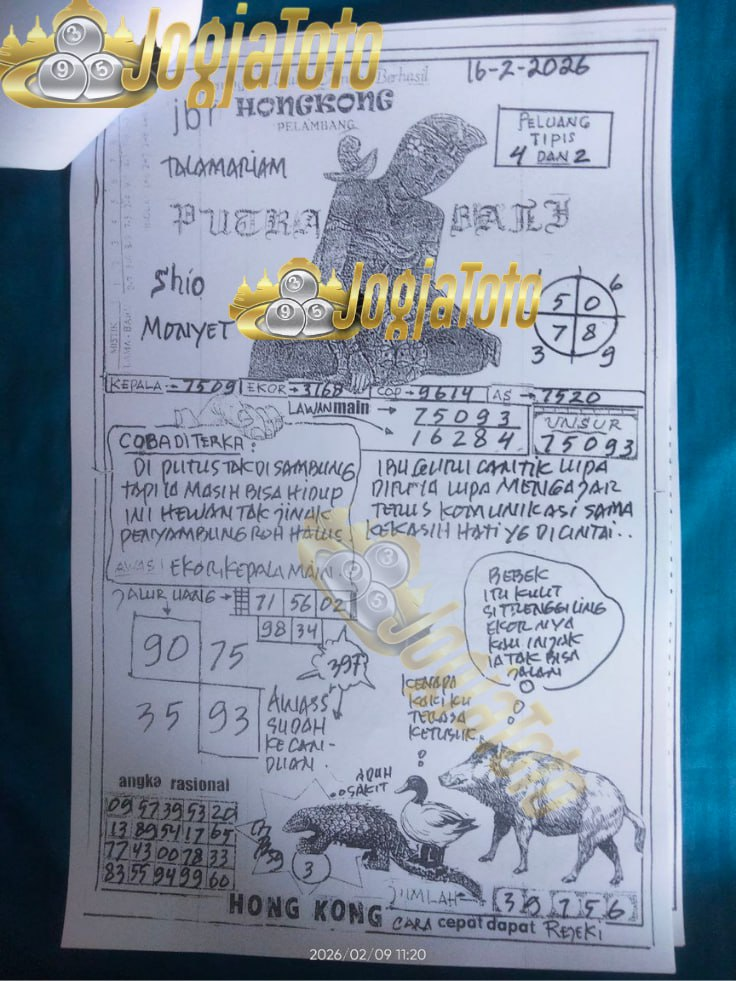 JogjaToto
3 9 5
Berhasil
16-2-2026
jbr HONGKONG
PELAMBANG
PELUANG
TIPIS
4 DAN 2
TALAMARIAM
PUTRA BALI
Shio
MONYET
JogjaToto
3 9 5
6
5 0
7 8
3 9
KEPALA :- 7509 EKOR → 3168 COP → 9614 AS → 7520
LAWAN main → 75093
16284
UNSUR
75093
COBA DI TERKA :
DI PUTUS TAK DI SAMBUNG
TAPI IA MASIH BISA HIDUP
INI HEWAN TAK JINAK
PENYAMBUNG ROH HALUS
IBU GURU CANTIK LUPA
DIRI IA LUPA MENGAJAR
TERUS KOMUNIKASI SAMA
KEKASIH HATI YG DI CINTAI..
AWAS! EKOR KEPALA MAIN.
JALUR UANG → 71 56 02
98 34
90 75
35 93
397?
AWASS
SUDAH
KECAN-
DUAN.
BEBEK
ITU KULIT
SI TRENGGILING
EKOR NYA
KAU INJAK
IA TAK BISA
JALAN
KENAPA
KAKI KU
TERASA
KETUSUK..
3 9 5
JogjaToto
angka rasional
09 57 39 53 20
13 89 54 17 65
77 43 00 78 33
83 55 94 99 60
ADUH
SAKIT
3
JUMLAH → 3 0 7 5 6
HONG KONG CARA cepat dapat REJEKI
2026/02/09 11:20